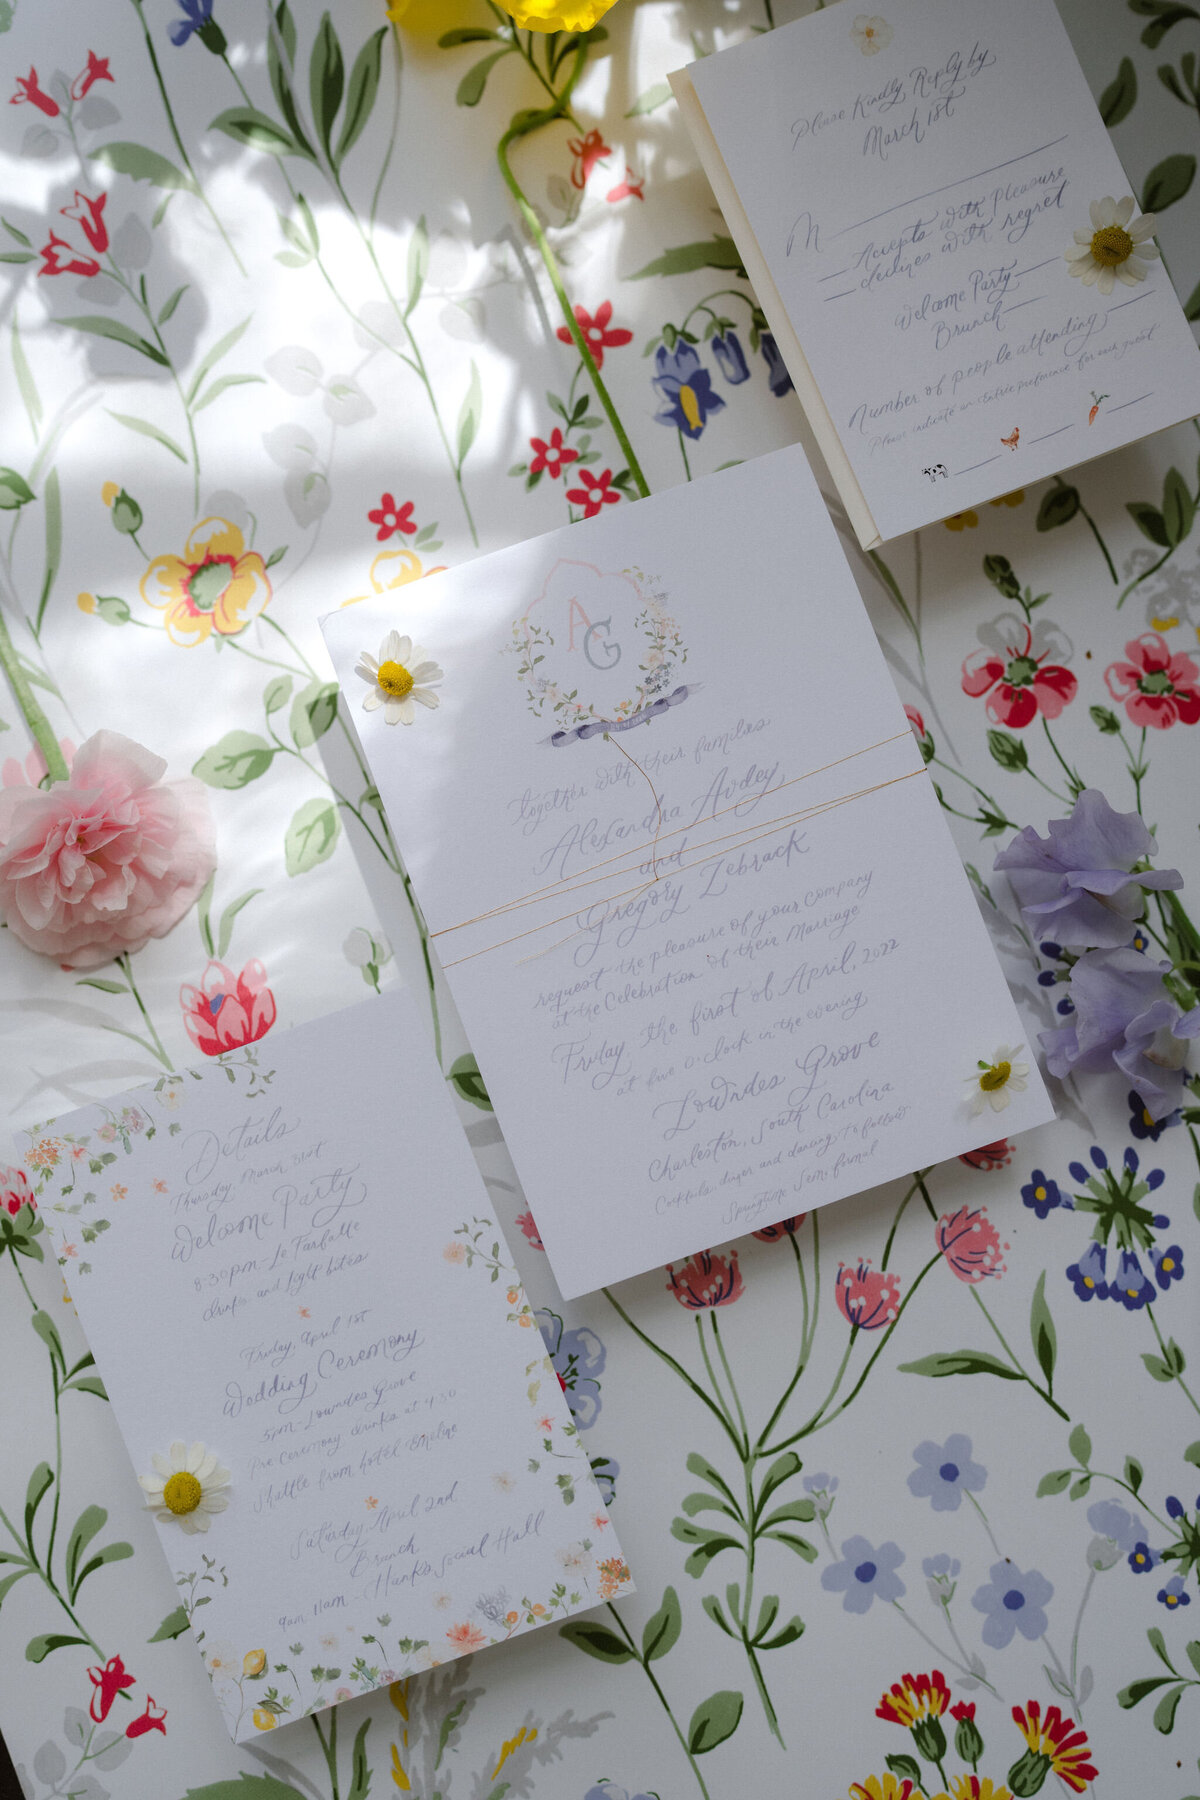 Please Kindly Reply by
March 1st
M
Accepts with pleasure
declines with regret
Welcome Party
Brunch
Number of people attending
Please indicate an Entrée preference for each guest
AG
together with their families
Alexandra Avdey
and
Gregory Zebrack
request the pleasure of your company
at the Celebration of their Marriage
Friday, the first of April, 2022
at five o'clock in the evening
Lowndes Grove
Charleston, South Carolina
Cocktails, dinner and dancing to follow
Springtime Semi formal
Details
Thursday March 31st
Welcome Party
8:30pm - Le Farfalle
drinks and light bites
Friday, April 1st
Wedding Ceremony
5pm - Lowndes Grove
Pre Ceremony drinks at 4:30
Shuttle from hotel Emeline
Saturday, April 2nd
Brunch
9am - 11am - Hank's Social Hall